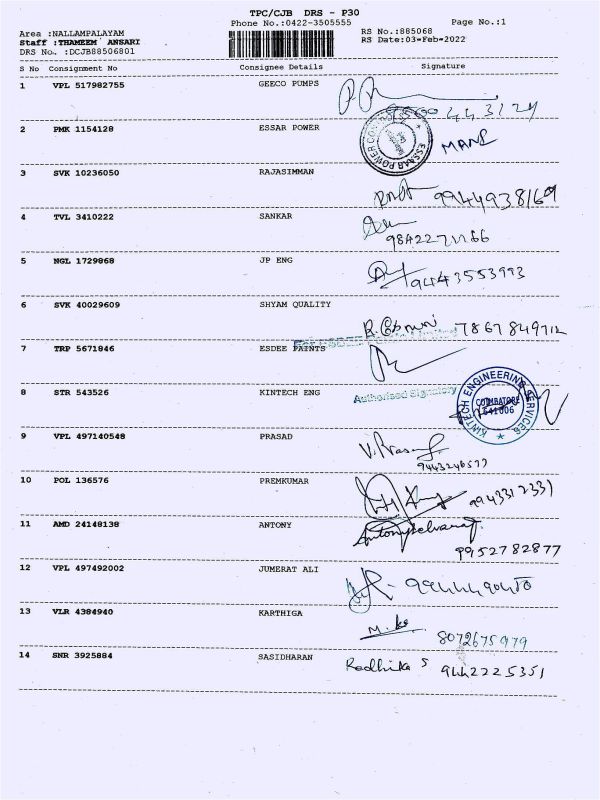 TPC/CJB DRS - P30
Phone No.:0422-3505555 Page No.:1
Area :NALLAMPALAYAM RS No.:885068
Staff :THAMEEM ANSARI RS Date:03-Feb-2022
DRS No. :DCJB88506801
S No Consignment No Consignee Details Signature
1 VPL 517982755 GEECO PUMPS
2 PMK 1154128 ESSAR POWER
MANI
3 SVK 10236050 RAJASIMMAN
9944938169
4 TVL 3410222 SANKAR
5 NGL 1729868 JP ENG
9443553993
6 SVK 40029609 SHYAM QUALITY
7867849712
7 TRP 5671846 ESDEE PAINTS
8 STR 543526 KINTECH ENG
Authorised Signatory
KINTECH ENGINEERING SERVICES
COIMBATORE
641006
9 VPL 497140548 PRASAD
V. Prasad
9443246577
10 POL 136576 PREMKUMAR
9943312331
11 AMD 24148138 ANTONY
Antonyselvaraj
9952782877
12 VPL 497492002 JUMERAT ALI
13 VLR 4384940 KARTHIGA
8072675979
14 SNR 3925884 SASIDHARAN
Radhika S 9442225351